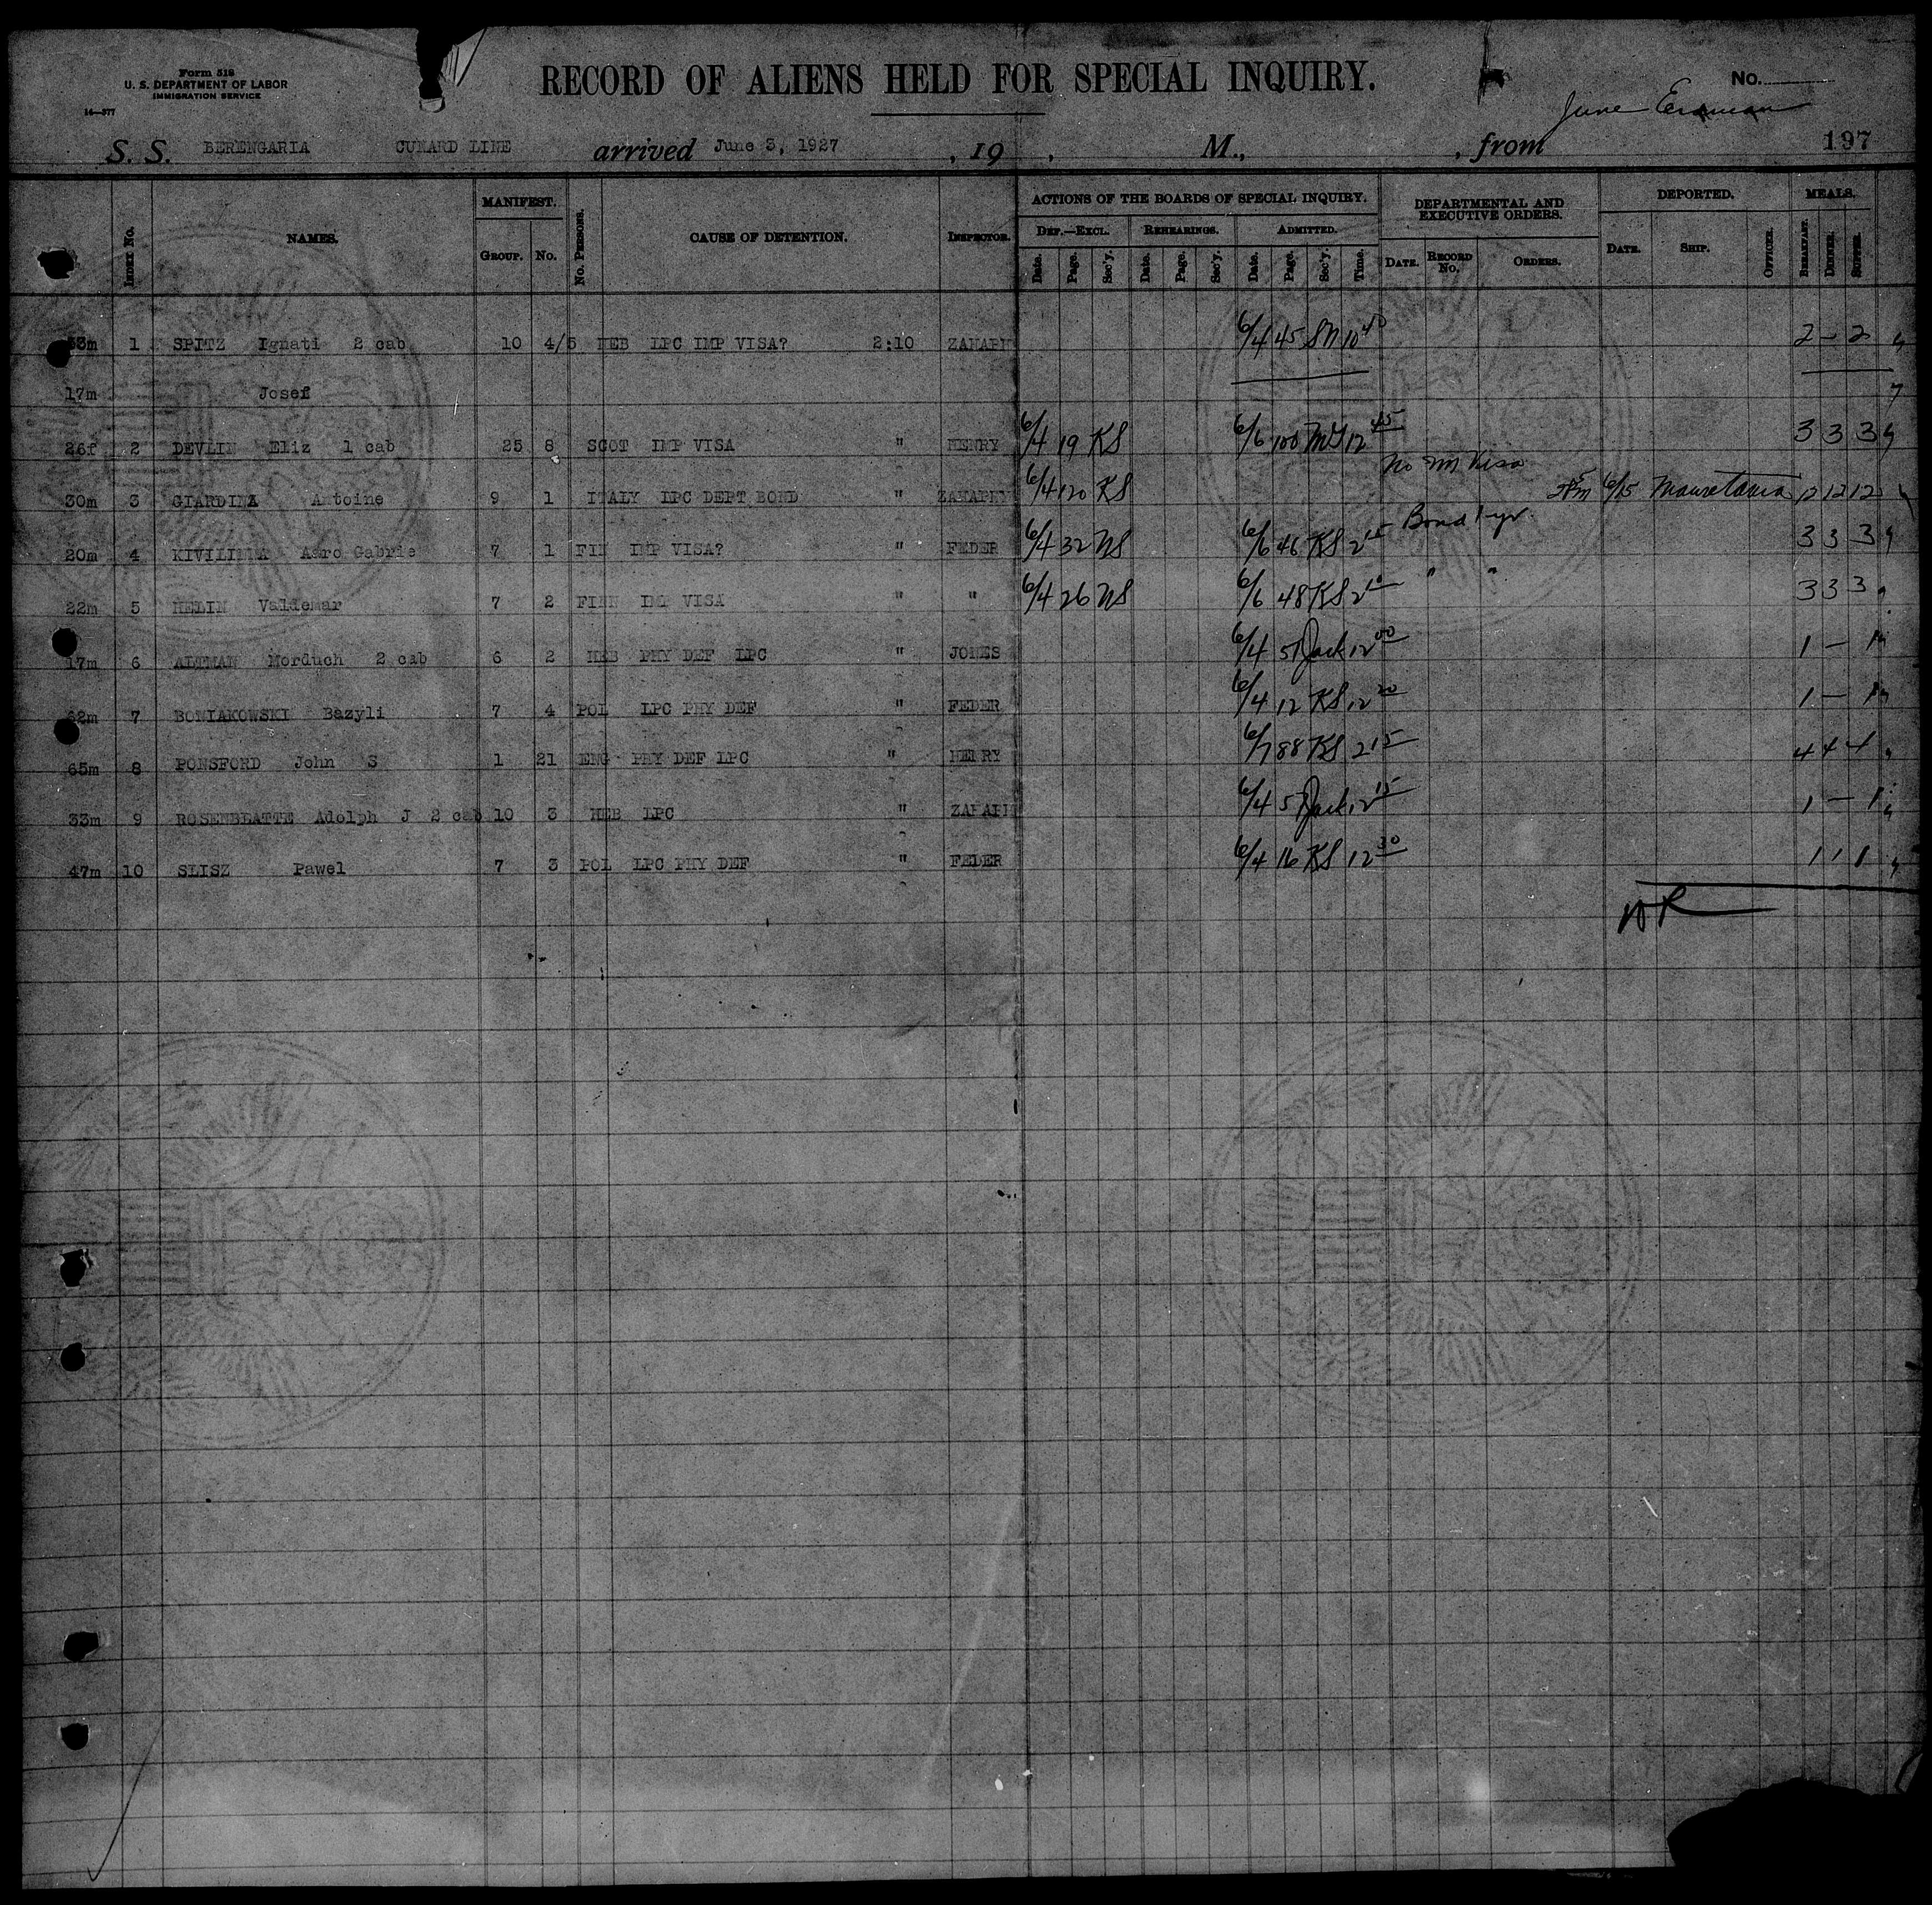 Form 518
U. S. DEPARTMENT OF LABOR
IMMIGRATION SERVICE
14—377
RECORD OF ALIENS HELD FOR SPECIAL INQUIRY.
No.
June
S. S. BERENGARIA CUNARD LINE arrived June 3, 1927 , 19 , M., , from 197
INDEX No. NAMES. MANIFEST. GROUP. No. No. PERSONS. CAUSE OF DETENTION. INSPECTOR. ACTIONS OF THE BOARDS OF SPECIAL INQUIRY. DEF.—EXCL. Date. Page. Sec'y. REHEARINGS. Date. Page. Sec'y. ADMITTED. Date. Page. Sec'y. Time. DEPARTMENTAL AND EXECUTIVE ORDERS. DATE. RECORD No. ORDERS. DEPORTED. DATE. SHIP. OFFICER. MEALS. BREAKFAST. DINNER. SUPPER.
33m 1 SPITZ Ignati 2 cab 10 4/5 HEB LPC IMP VISA? 2:10 ZAHARY 6/4 45 SN 10 40 2 – 2
17m Josef
26f 2 DEVLIN Eliz 1 cab 25 8 SCOT IMP VISA " HENRY 6/4 19 KS 6/6 100 12 45 3 3 3
No Im Visa
30m 3 GIARDINA Antoine 9 1 ITALY LPC DEPT BOND " 6/4 120 KS 6/15 Mauretania 12 12 12
Bond 1 yr.
20m 4 KIVILINNA Aaro Gabrie 7 1 FIN IMP VISA? " FEDER 6/4 32 NS 6/6 46 KS 2 3 3 3
22m 5 HELIN Valdemar 7 2 FINN IMP VISA " " 6/4 26 NS 6/6 48 KS 2 " " 3 3 3
17m 6 ALTMAN Morduch 2 cab 6 2 HEB PHY DEF LPC " JONES 6/4 51 Jack 12 00 1 – 1
62m 7 BONIAKOWSKI Bazyli 7 4 POL LPC PHY DEF " FEDER 6/4 12 KS 12 20 1 – 1
65m 8 PONSFORD John S 1 21 ENG PHY DEF LPC " HENRY 6/7 88 KS 2 15 4 4 4
33m 9 ROSENBLATTE Adolph J 2 cab 10 3 HEB LPC " 6/4 Jack 12 15 1 – 1
47m 10 SLISZ Pawel 7 3 POL LPC PHY DEF " FEDER 6/4 16 KS 12 30 1 1 1